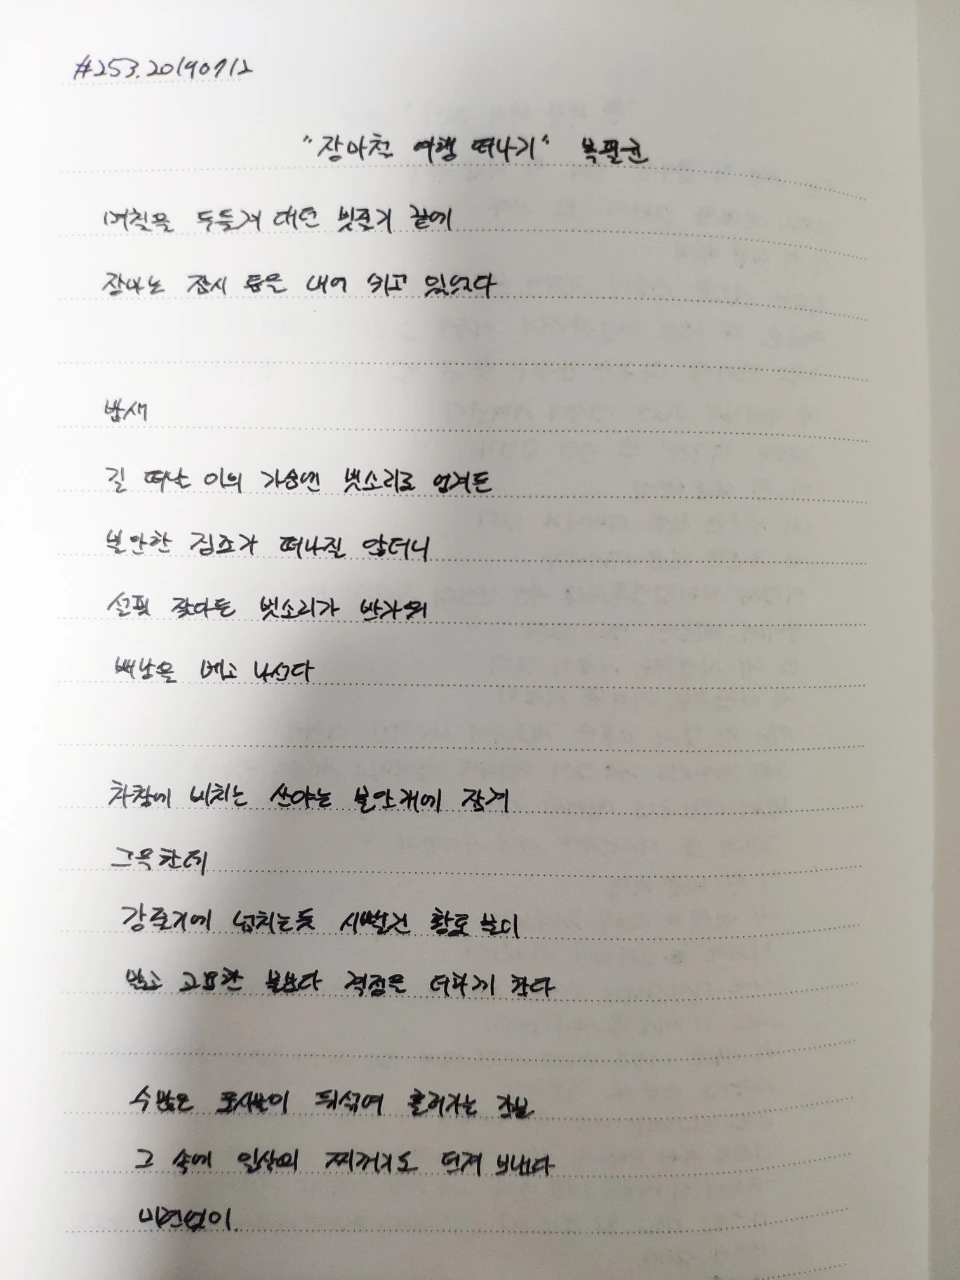 #253.20190712
"장마철 여행 떠나기" 목필균
며칠을 두들겨 대던 빗줄기 끝에
장마는 잠시 틈을 내어 쉬고 있었다
밤새
길 떠난 이의 가슴엔 빗소리로 엉겨든
불안한 징조가 떠나질 않더니
설핏 잦아든 빗소리가 반가워
배낭을 메고 나선다
차창에 비치는 산야는 물안개에 잠겨
그윽한데
강줄기에 넘치는듯 시뻘건 황토 물이
맑고 고요한 물보다 격정을 더하게 한다
수많은 토사물이 뒤섞여 흘러가는 강물
그 속에 일상의 찌꺼기도 던져 보낸다
미련없이